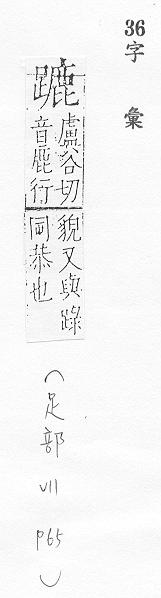 36字彙
蹗
盧谷切
音鹿行
貌又與
同恭也
(足部 VII P65)